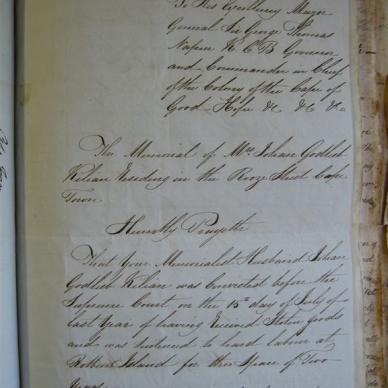 To His Excellency Major
General Sir George Thomas
Napier K C B Governor
and Commander in Chief
of the Colony of the Cape of
Good Hope &c &c &c
The Memorial of Mrs Johan Godlieb
Kilian Residing in the Rooze Street Cape
Town
Humbly Prayeth
That Your Memorialist Husband Johan
Godlieb Kilian was convicted before the
Supreme Court on the 15th day of July of
last Year of having Received Stolen Goods
and was sentenced to hard labour at
Robben Island for the Space of Two
Years